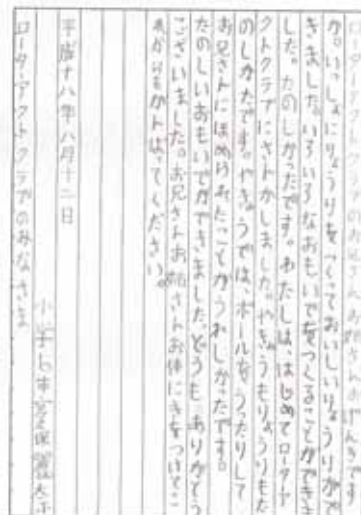 ロータークトクラブのお兄さんお姉さんお げんきです
か。いっしょにりょうりをつくっておいしいりょうりがで
きました。いろいろなおもいでをつくることができま
した。たのしかったです。わたしは、はじめてローター
クトクラブにさんかしました。やきゅうもりょうりもた
のしかったです。やきゅうでは、ボールをうったりして
お兄さんにほめられたことがうれしかったです。
たのしいおもいでができました。どうもありがとう
ございました。お兄さんお姉さんお体にきをつけてこ
れからもがんばってください。
平成十八年八月十二日
小学七年
ローターアクトクラブのみなさま